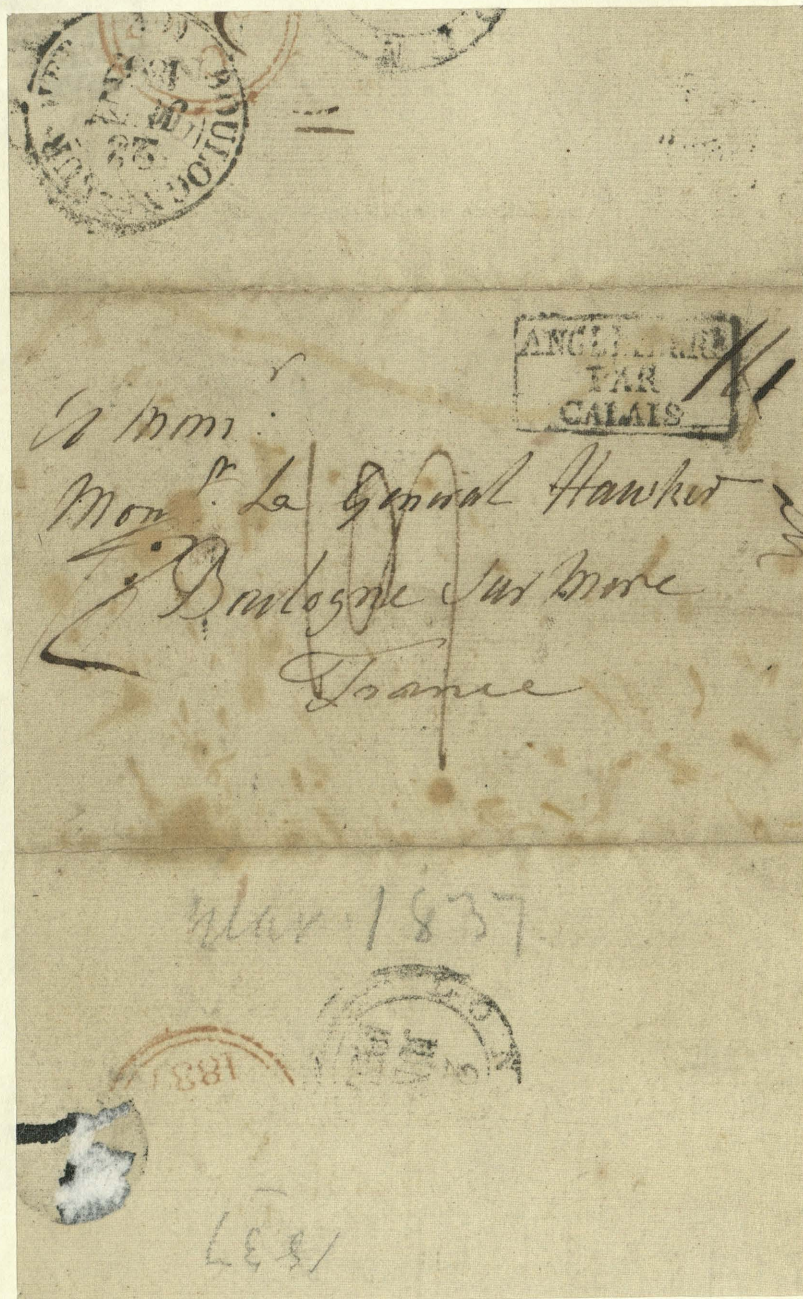 BOULOGNE SUR MER
28
ANGLETERRE
PAR
CALAIS
A Monr
Monr. La General Hawker
Boulogne Sur Mere
France
Mar 1837
LON
1837
1837